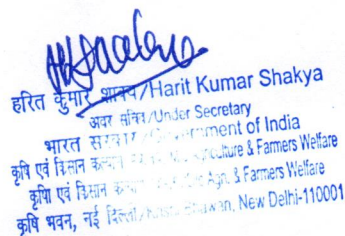 हरित कुमार शाक्य/Harit Kumar Shakya
अवर सचिव/Under Secretary
भारत सरकार/Government of India
कृषि एवं किसान कल्याण Agriculture & Farmers Welfare
कृषि एवं किसान Agri. & Farmers Welfare
कृषि भवन, नई दिल्ली/Krishi Bhawan, New Delhi-110001